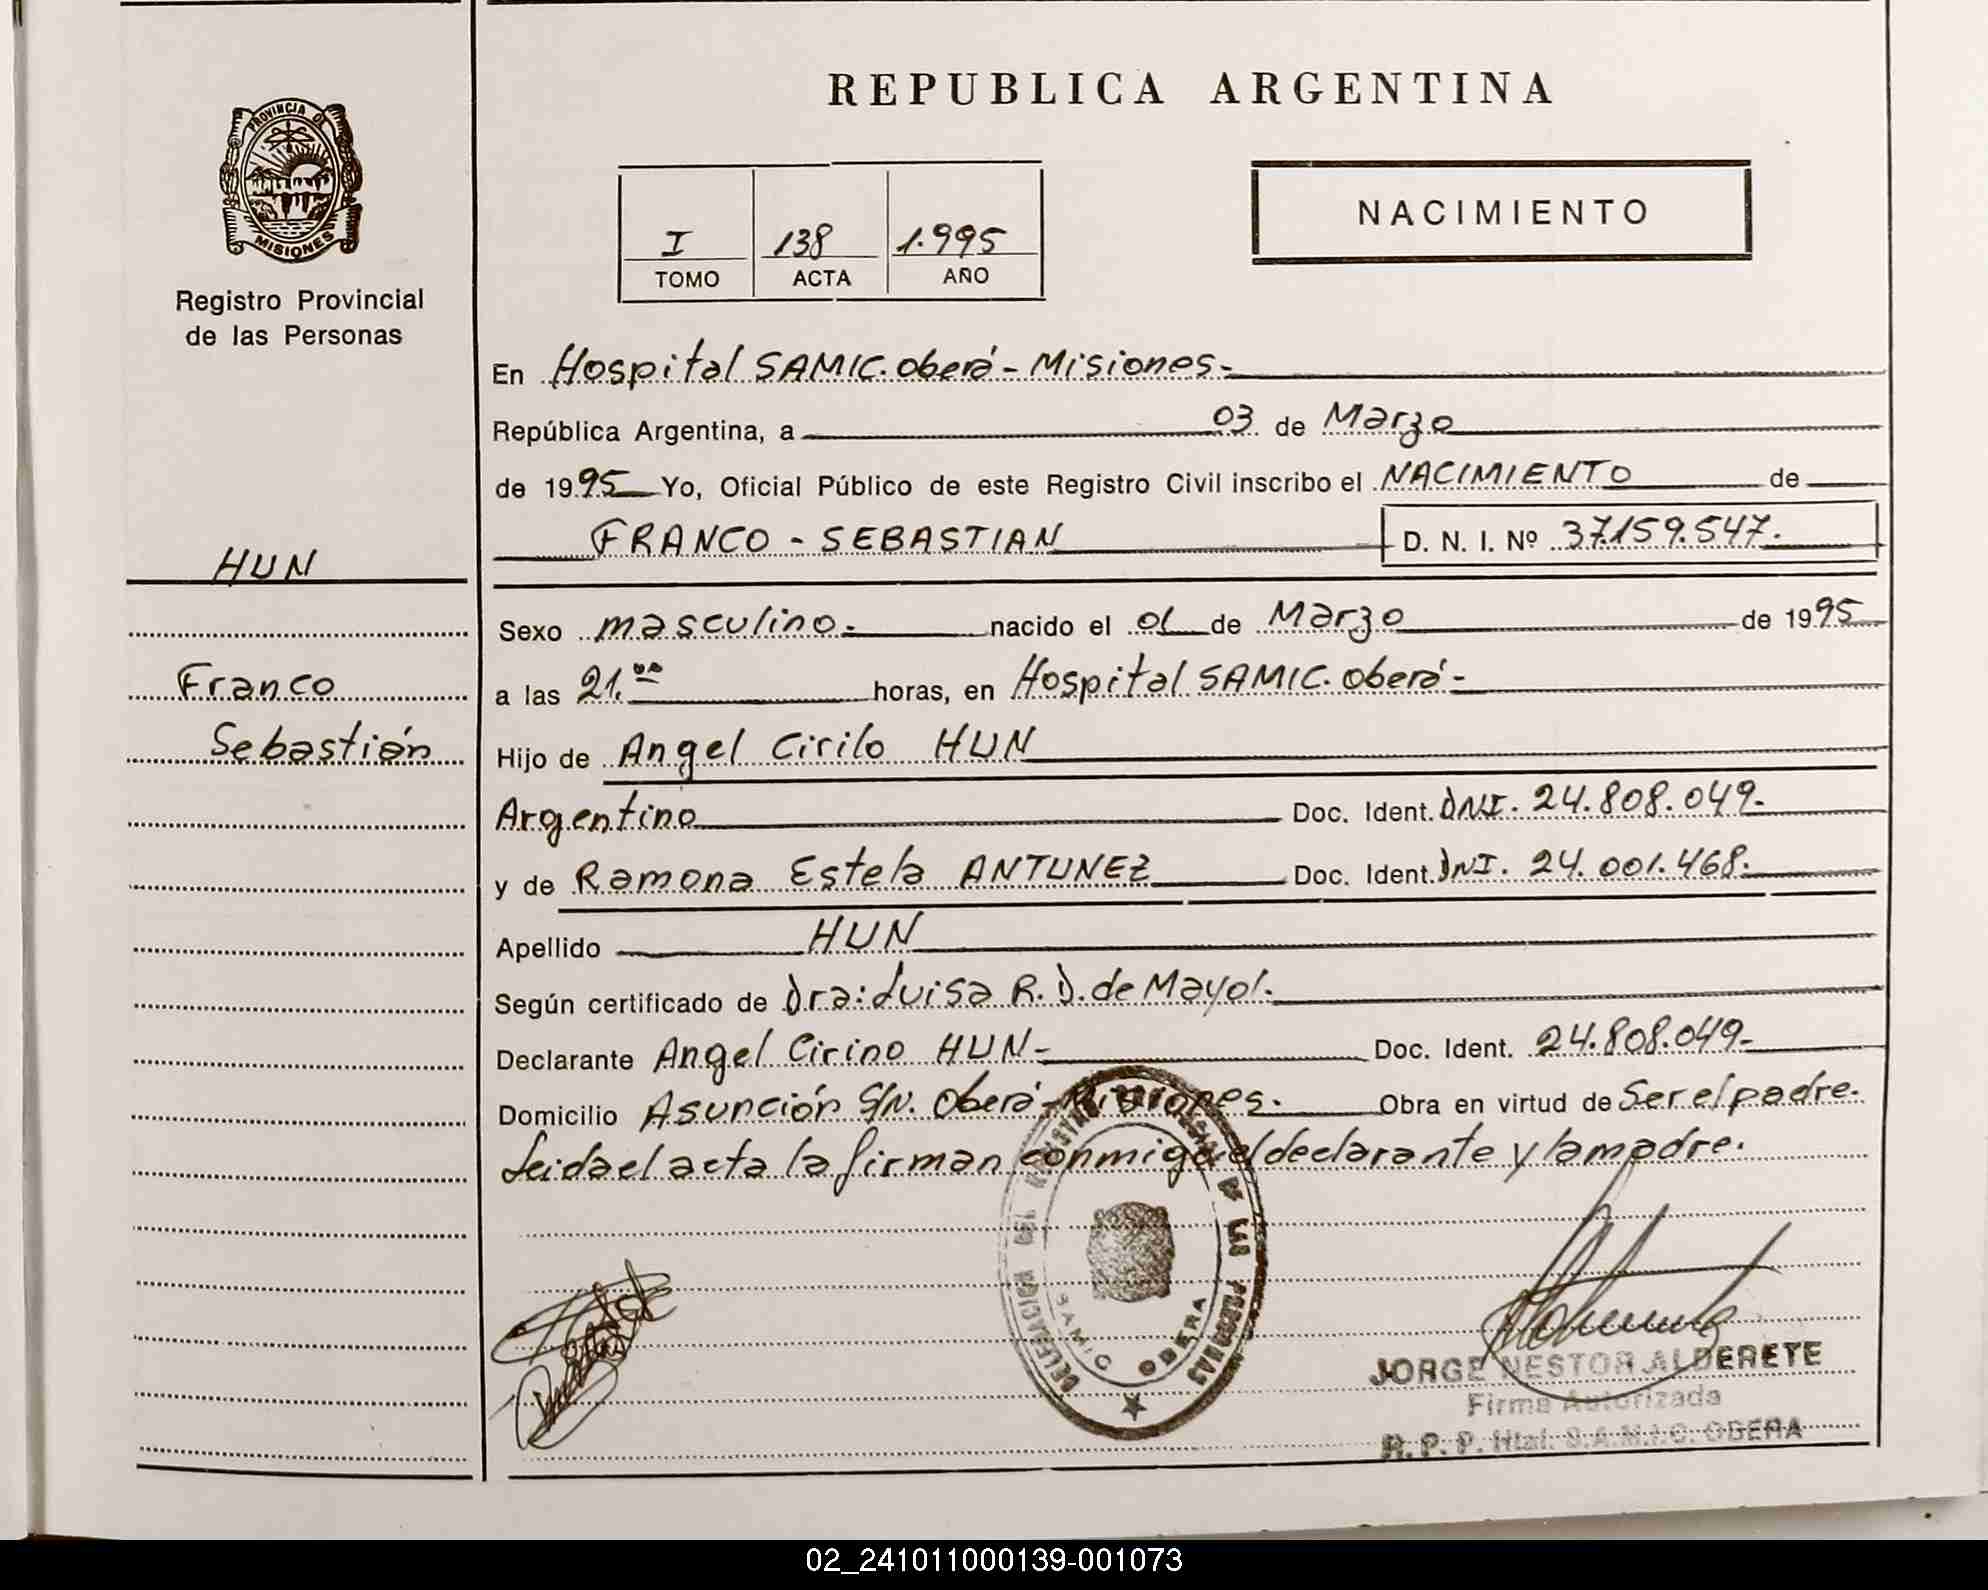 PROVINCIA DE
MISIONES
Registro Provincial
de las Personas
HUN
Franco
Sebastián
REPUBLICA ARGENTINA
I 138 1.995
TOMO ACTA AÑO
NACIMIENTO
En Hospital SAMIC. Oberá - Misiones.-
República Argentina, a 03 de Marzo
de 1995 Yo, Oficial Público de este Registro Civil inscribo el NACIMIENTO de
FRANCO - SEBASTIAN D. N. I. Nº 37.159.547.
Sexo masculino.- nacido el 01 de Marzo de 1995
a las 21.00 horas, en Hospital SAMIC. Oberá.-
Hijo de Angel Cirilo HUN
Argentino Doc. Ident. DNI. 24.808.049.-
y de Ramona Estela ANTUNEZ Doc. Ident. DNI. 24.001.468.-
Apellido HUN
Según certificado de Dra: Luisa R. D. de Mayol.
Declarante Angel Cirino HUN- Doc. Ident. 24.808.049.-
Domicilio Asunción S/N. Oberá - Misiones. Obra en virtud de Ser el padre.
Leida el acta la firman conmigo el declarante y la madre.
DE LAS PERSONAS
SAMIC OBERA
JORGE NESTOR ALDERETE
Firma Autorizada
R. P. P. Htal. S.A.M.I.C. OBERA
02_241011000139-001073